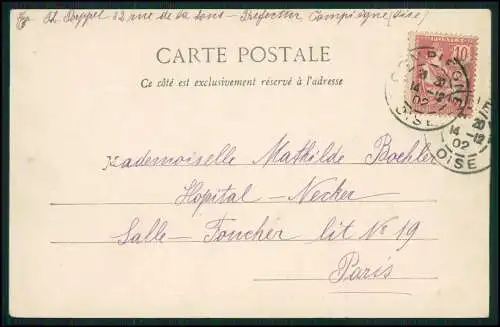 rue de la Sous-Prefecture Compiègne (Oise)
CARTE POSTALE
Ce côté est exclusivement réservé à l'adresse
10
COMPIEGNE
14 -12
02
OISE
14 -12
02
OISE
Mademoiselle Mathilde Boehler
Hopital - Necker
Salle - Foucher lit No 19
Paris